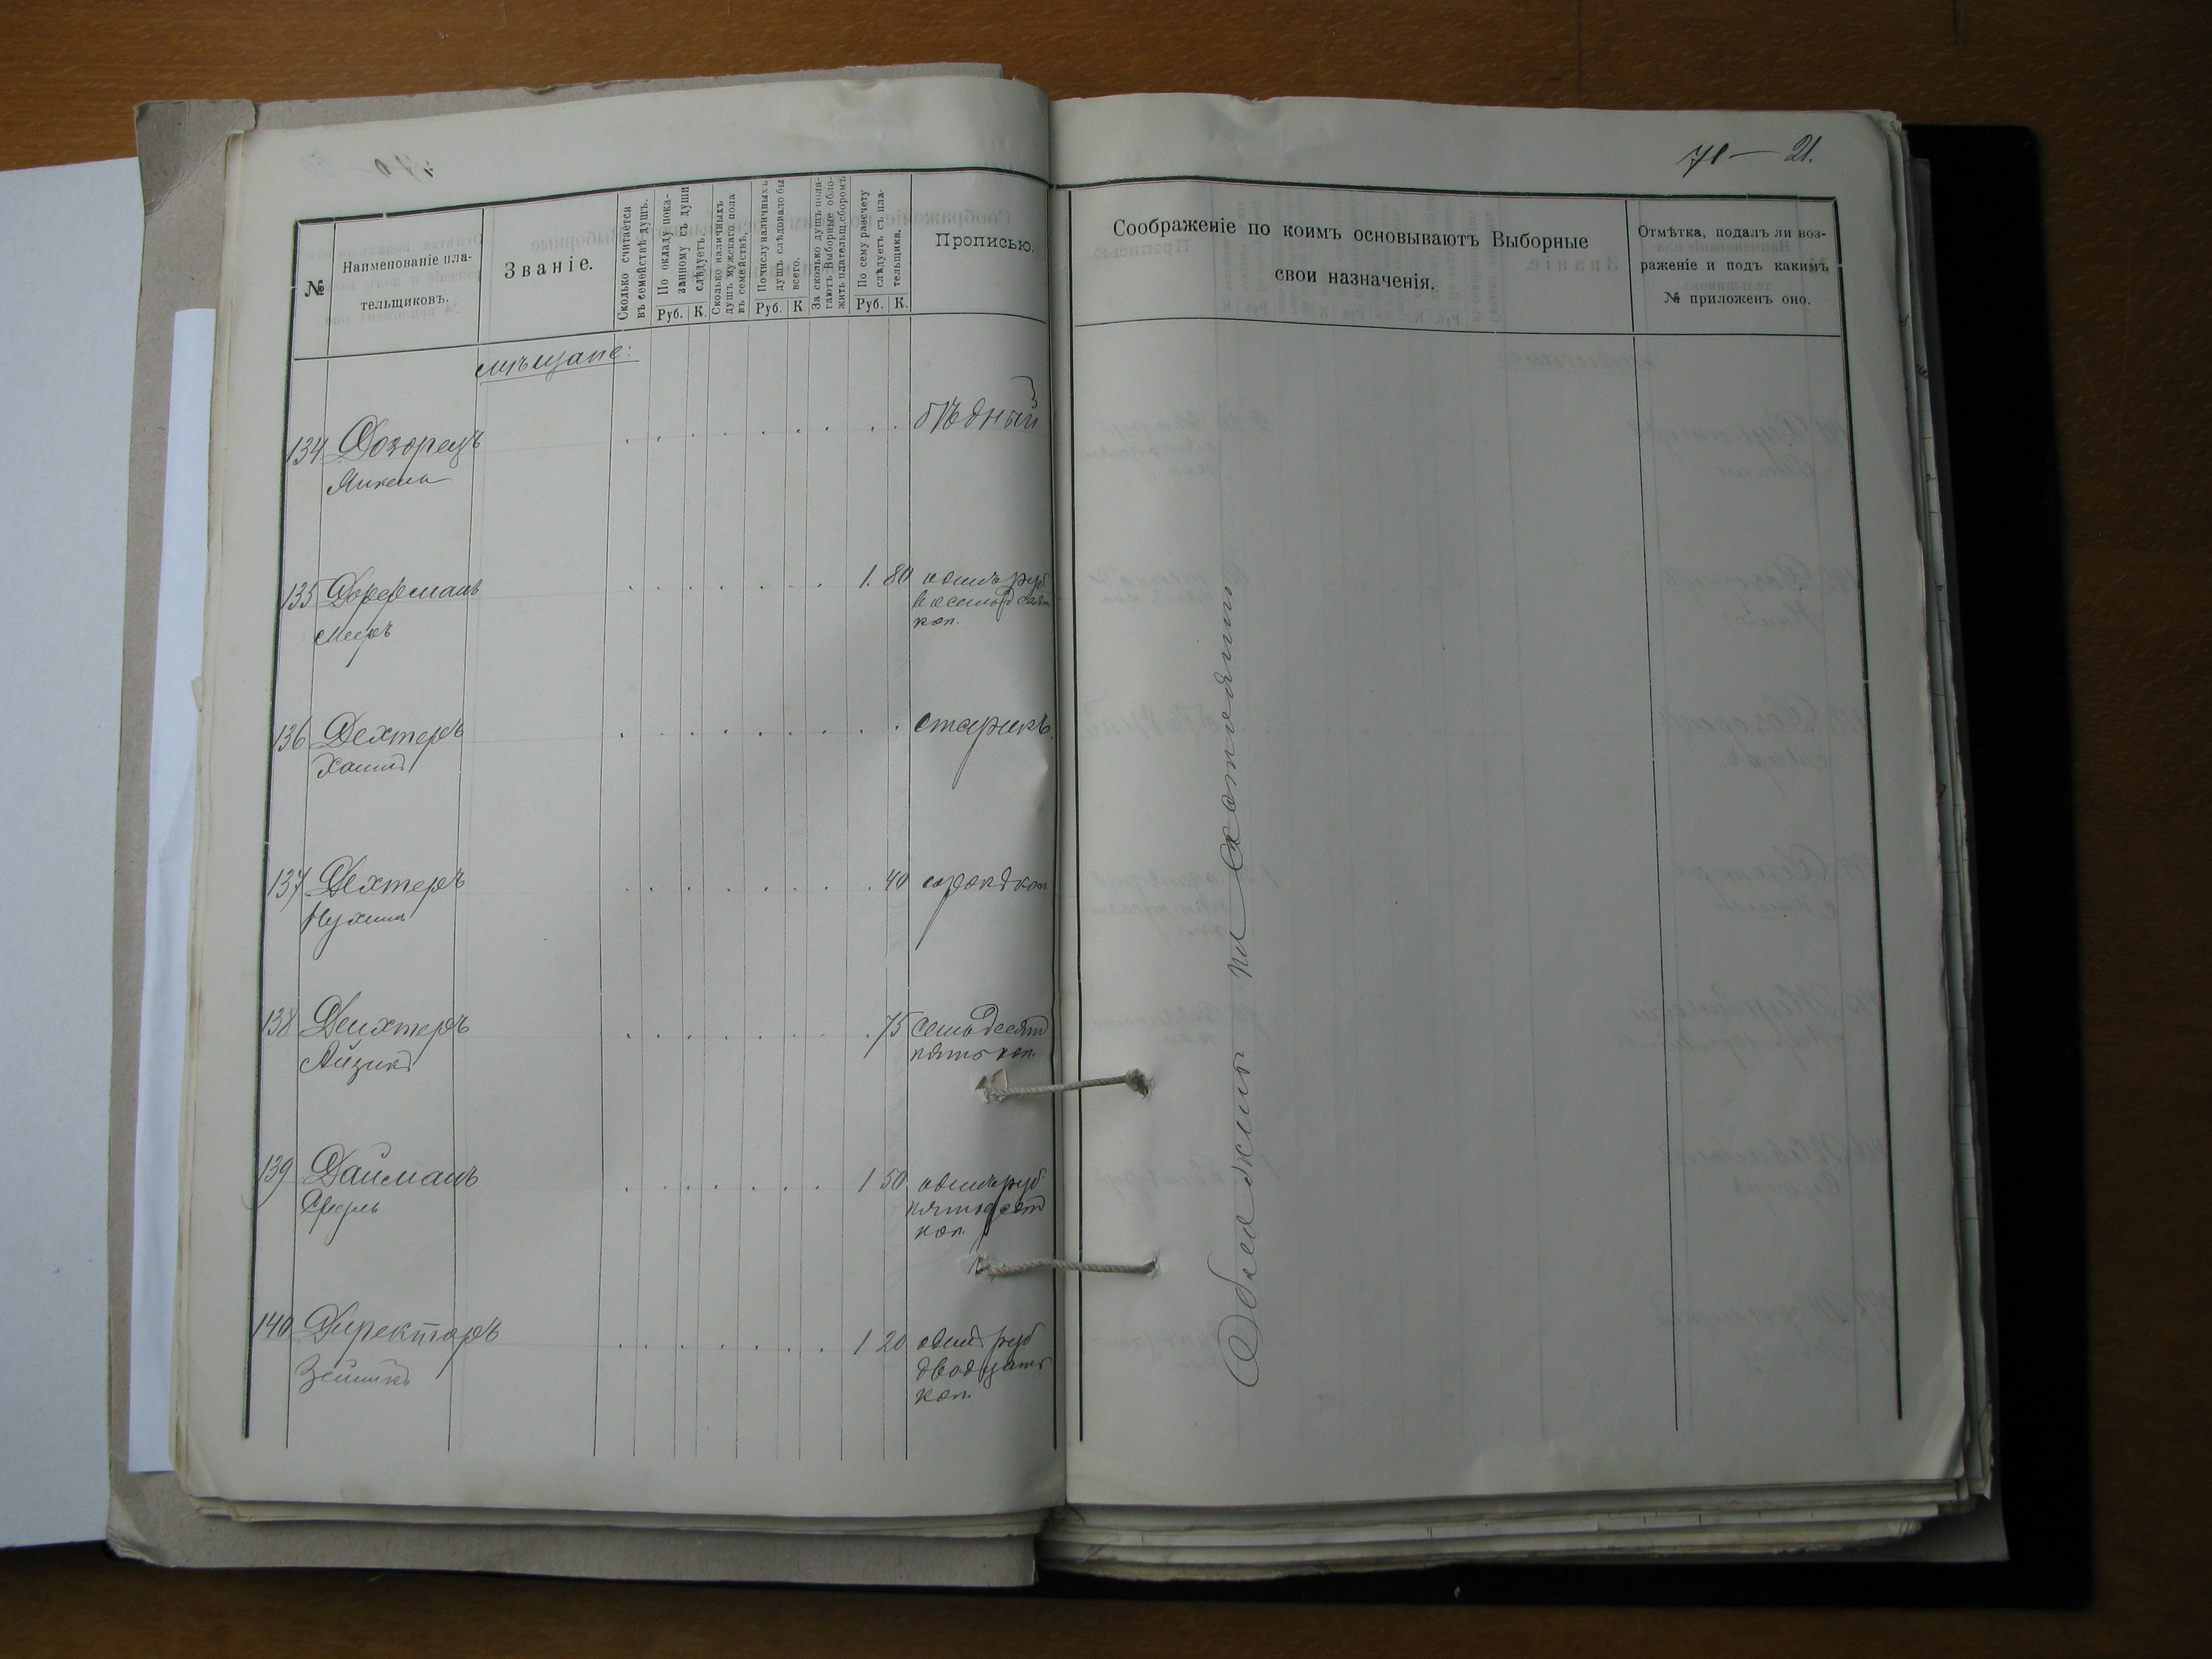 71 — 21.
№
Наименованіе пла-
тельщиковъ.
Званіе.
Сколько считается
въ семействѣ душъ.
По окладу пока-
занному съ души
слѣдуетъ.
Руб. К.
Сколько наличныхъ
душъ мужскаго пола
въ семействѣ.
По числу наличныхъ
душъ слѣдовало бы
всего.
Руб. К.
За сколько душъ пола-
гаютъ Выборные обло-
жить плательщ. сборомъ
По сему разсчету
слѣдуетъ съ пла-
тельщика.
Руб. К.
Прописью.
Соображеніе по коимъ основываютъ Выборные
свои назначенія.
Отмѣтка, подалъ ли воз-
раженіе и подъ какимъ
№ приложенъ оно.
мѣщане:
134 Дозорецъ бѣдный
Янкель
135 Дорфманъ 1. 80 одинъ руб
Мееръ восемьдесят
коп.
136 Дехтеръ старикъ
Хаимъ
137 Дехтеръ 40 сорокъ коп
Нухимъ
138 Дехтеръ 75 семьдесятъ
Айзикъ пять коп.
139 Дайманъ 1 50 одинъ руб
Сруль пятьдесят
коп.
140 Директоръ 1 20 одинъ руб
двадцать
коп.
Обложить по Состоянію